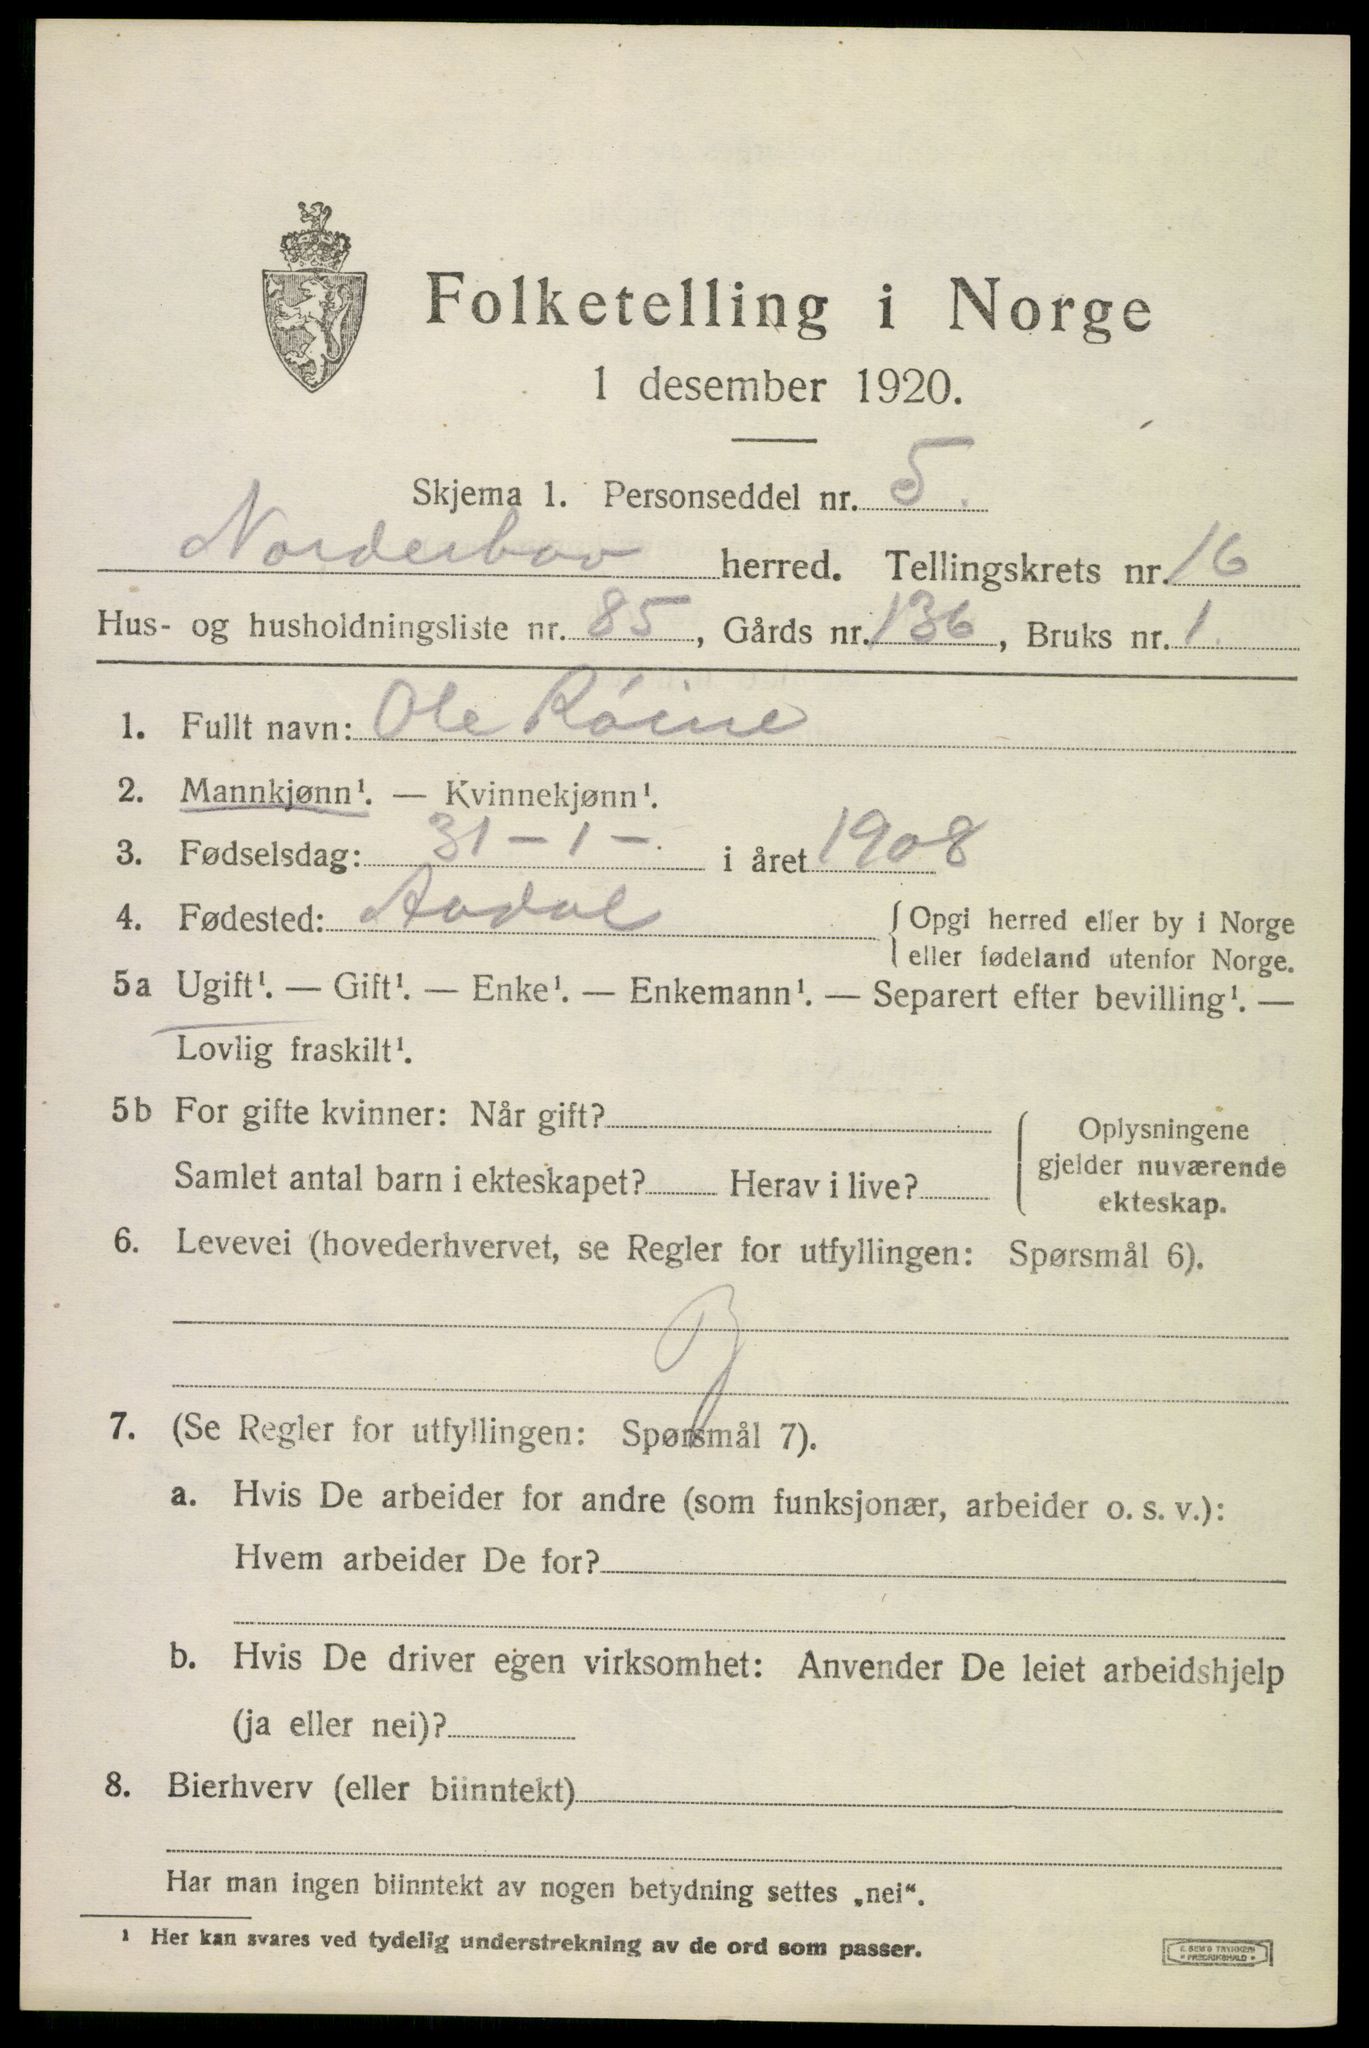 Folketelling i Norge
1 desember 1920.
Skjema 1. Personseddel nr. 5.
Norderhov herred. Tellingskrets nr. 16
Hus- og husholdningsliste nr. 85, Gårds nr. 136, Bruks nr. 1.
1. Fullt navn: Ole Röine
2. Mannkjønn¹. — Kvinnekjønn¹.
3. Fødselsdag: 31 - 1 - i året 1908
4. Fødested: Aadal { Opgi herred eller by i Norge
eller fødeland utenfor Norge.
5a Ugift¹. — Gift¹. — Enke¹. — Enkemann¹. — Separert efter bevilling¹. —
Lovlig fraskilt¹.
5b For gifte kvinner: Når gift?
Samlet antal barn i ekteskapet? Herav i live?
Oplysningene
gjelder nuværende
ekteskap.
6. Levevei (hovederhvervet, se Regler for utfyllingen: Spørsmål 6).
7. (Se Regler for utfyllingen: Spørsmål 7).
a. Hvis De arbeider for andre (som funksjonær, arbeider o. s. v.):
Hvem arbeider De for?
b. Hvis De driver egen virksomhet: Anvender De leiet arbeidshjelp
(ja eller nei)?
8. Bierhverv (eller biinntekt)
Har man ingen biinntekt av nogen betydning settes „nei“.
¹ Her kan svares ved tydelig understrekning av de ord som passer.
E. SEM'S TRYKKERI
FREDRIKSHALD